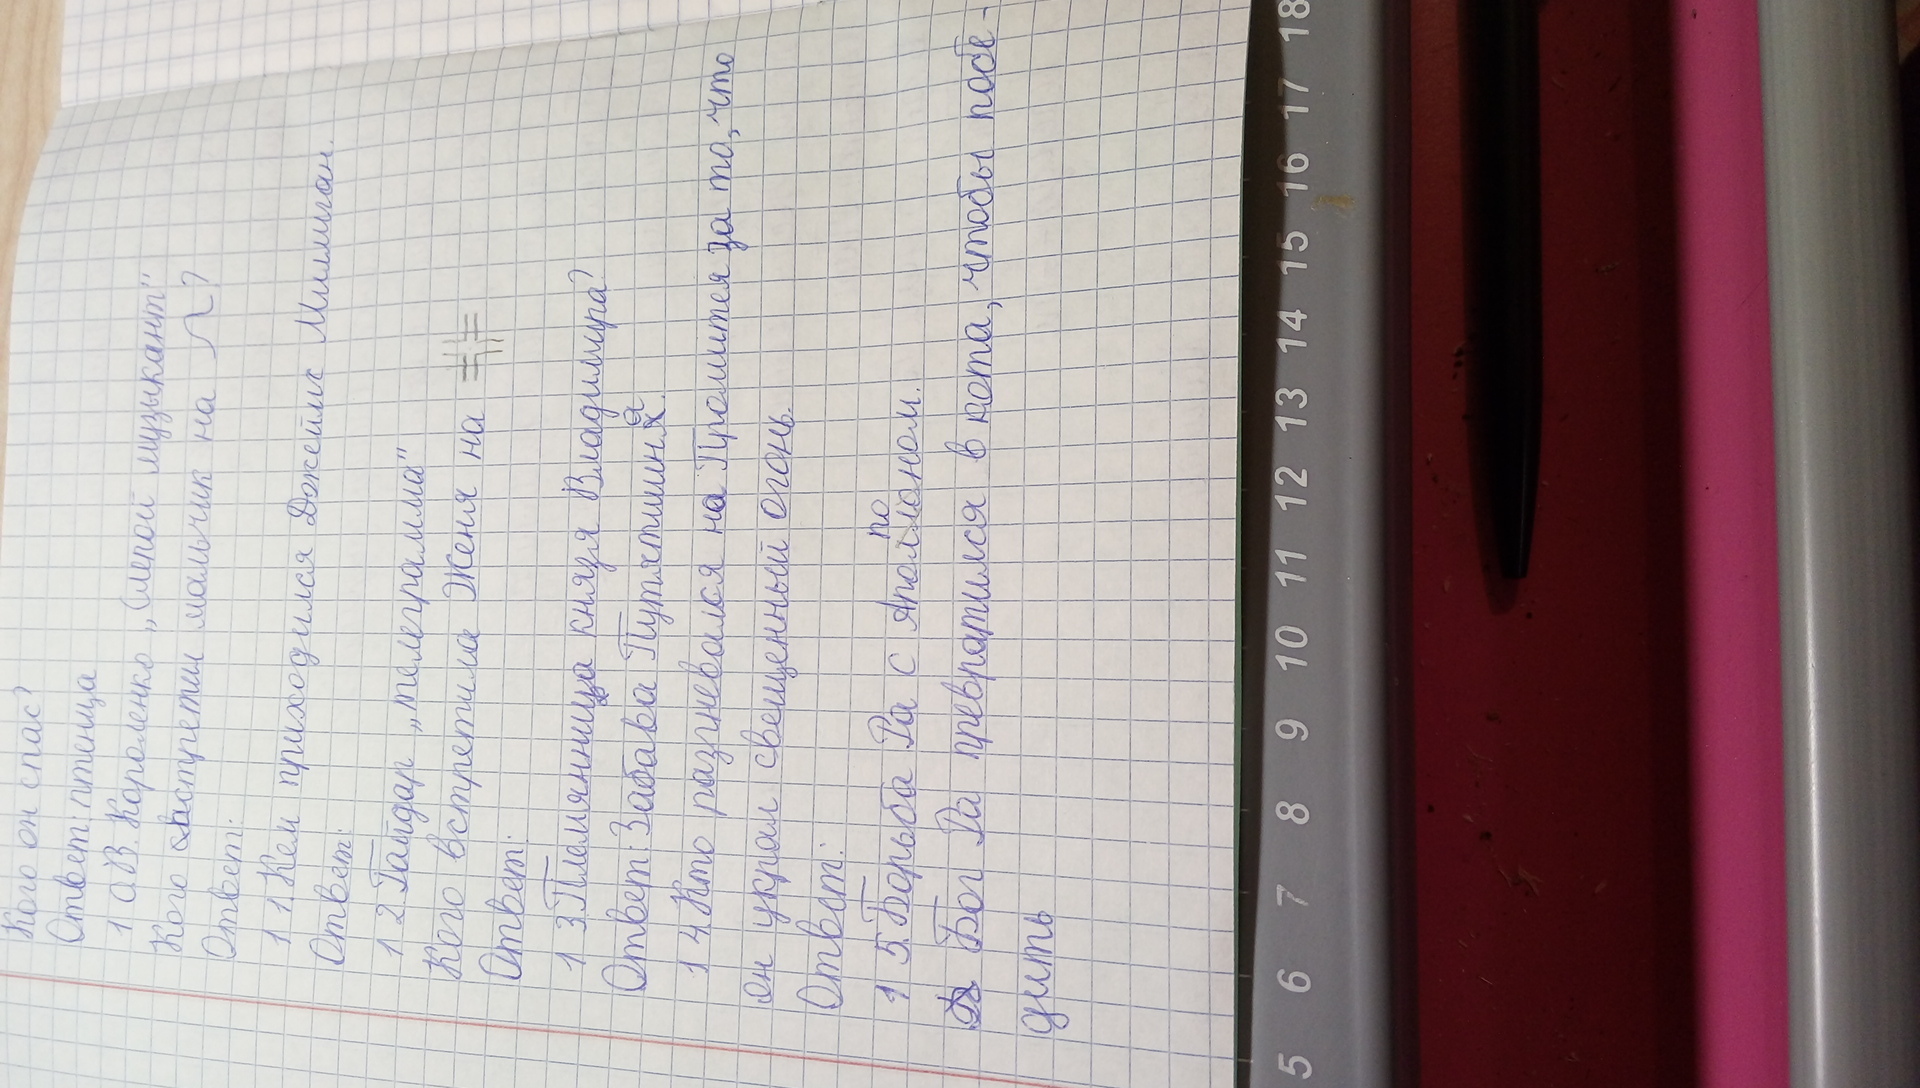 Кого он спас?
Ответ: птенца
10 В. Короленко „Слепой музыкант"
Кого встретил мальчик на
Ответ:
11. Кем приходился Джеймс Миллиган.
Ответ:
12. Гайдар „телеграмма"
Кого встретила Женя на
Ответ:
13. Племянница князя Владимира?
Ответ: Забава Путятишня.
14. Кто разгневался на Промитея за то, что
он украл свещенный огонь.
Ответ:
15. Борьба Ра с Апопоном.
Бог Ра превратился в кота, чтобы побе-
дить
5 6 7 8 9 10 11 12 13 14 15 16 17 18